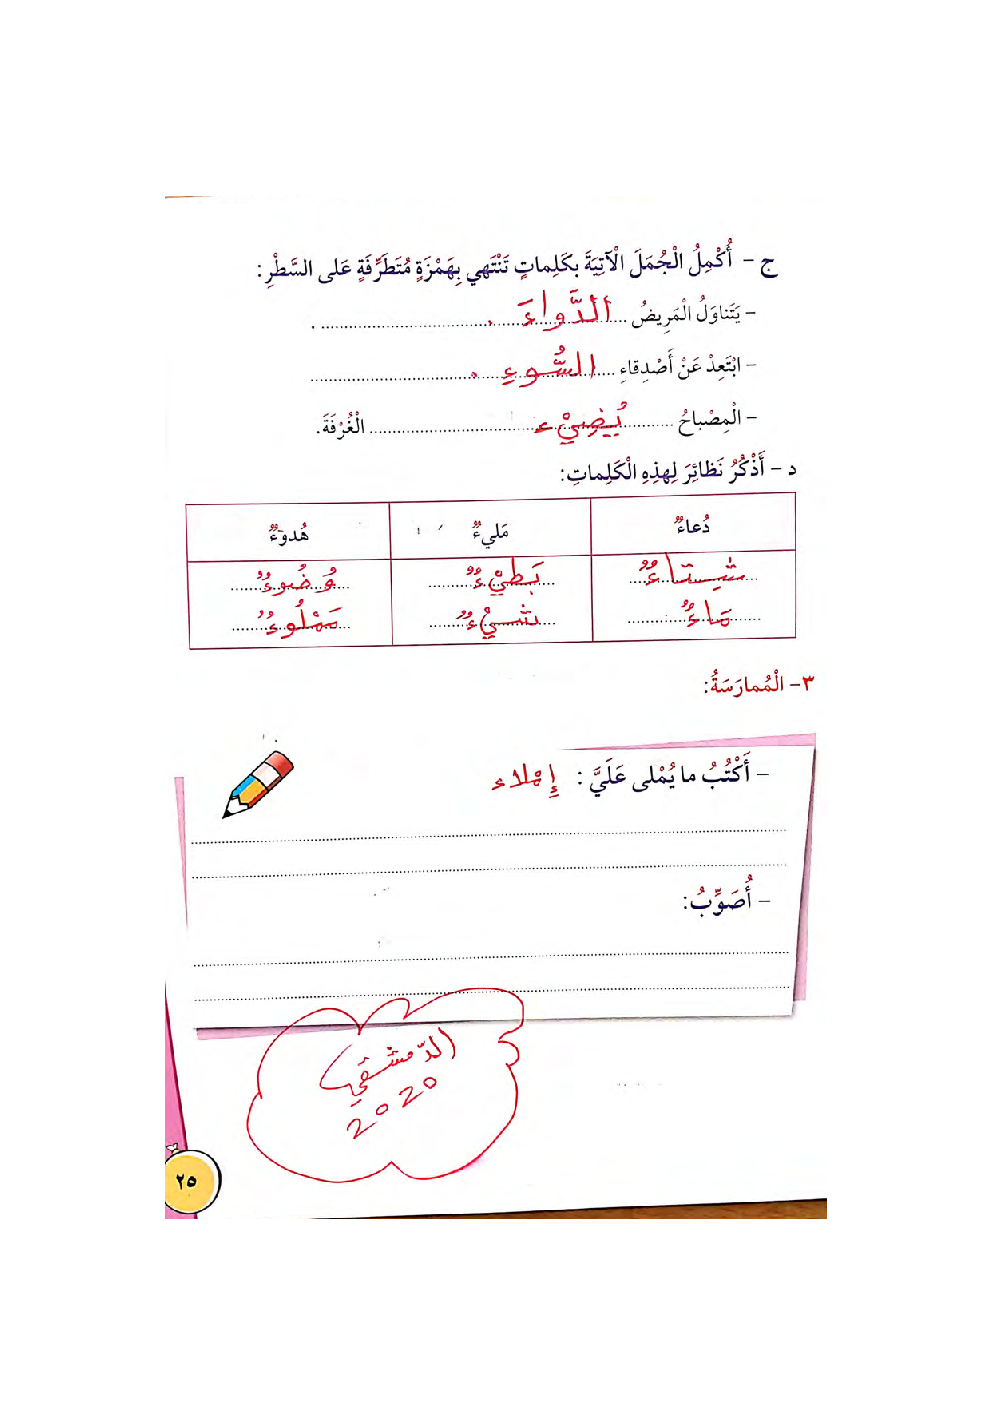 ج - أُكْمِلُ الْجُمَلَ الْآتِيَةَ بِكَلِماتٍ تَنْتَهي بِهَمْزَةٍ مُتَطَرِّفَةٍ عَلى السَّطْرِ:
- يَتَناوَلُ الْمَرِيضُ ..... الدَّواءَ .
- ابْتَعِدْ عَنْ أَصْدِقاءِ ..... السُّوءِ .
- الْمِصْباحُ ..... يُضِيْء ..... الْغُرْفَةَ.
د - أَذْكُرُ نَظائِرَ لِهذِهِ الْكَلِماتِ:
دُعاءٌ مَليءٌ هُدوءٌ
شِتاءٌ بَطِيْءٌ وُضُوءٌ
مَاءٌ شَيْءٌ مَمْلُوءٌ
٣- الْمُمارَسَةُ:
- أَكْتُبُ ما يُمْلى عَلَيَّ : إملاء
- أُصَوِّبُ:
الدّمشقي
2020
٢٥